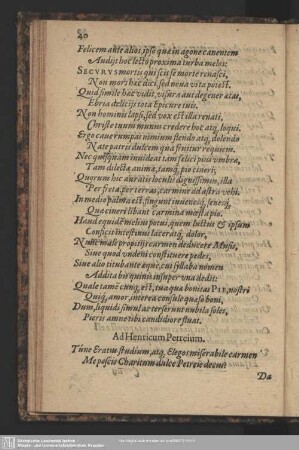 40
Felicem ante alios, ipse quæ in agone canentem
Audijt hoc lecto proxima turba melos:
SECVRVS mortis qui scit se morte renasci,
Non mors hæc dici, sed nena vita potest.
Quid simile hæc vidit, visura aut degener ætas,
Ebria delicijs tota Epicure tuis.
Non hominis lapsi, sed vox est illa renati,
Christe tuum munus credere hoc atq; loqui.
Ergo caue rumpai nimium flendo atq; dolendo
Nate patris dulcem qua fruitur requiem.
Nec quisquam inuideat tam felici pius vmbræ,
Tam dilectæ animæ, tamq; pio cineri;
Quorum hic auratis benesit dignissimus, illa
Per freta, per terras, carmine ad astra vehi.
In medio palma est, singunt iuuenesq; senesq;
Qua cineri libant carmina mœsta pio.
Haud equidem melius potui, quem luctus & ipsum
Conficit intestinus laceratq; dolor,
Nunc male propitijs carmen deducere Musis,
Siue quod vndeni constituere pedes,
Siue alio titubante gyro, cui syllaba nomen
Addita bis quinis insuper vna dedit:
Quale tamen cunq; est, tua qua bonitas PII, nostri
Quiq; amor, interea consule quæso boni,
Dum, liquidi simul ac terserunt nubila soles,
Pieris amne tibi candidiore fluat.
Ad Henricum Petreium.
Tune Eratus studium, atq; Elegos miserabile carmen
Me poscis Charitum dulce Petreie decus?
Da